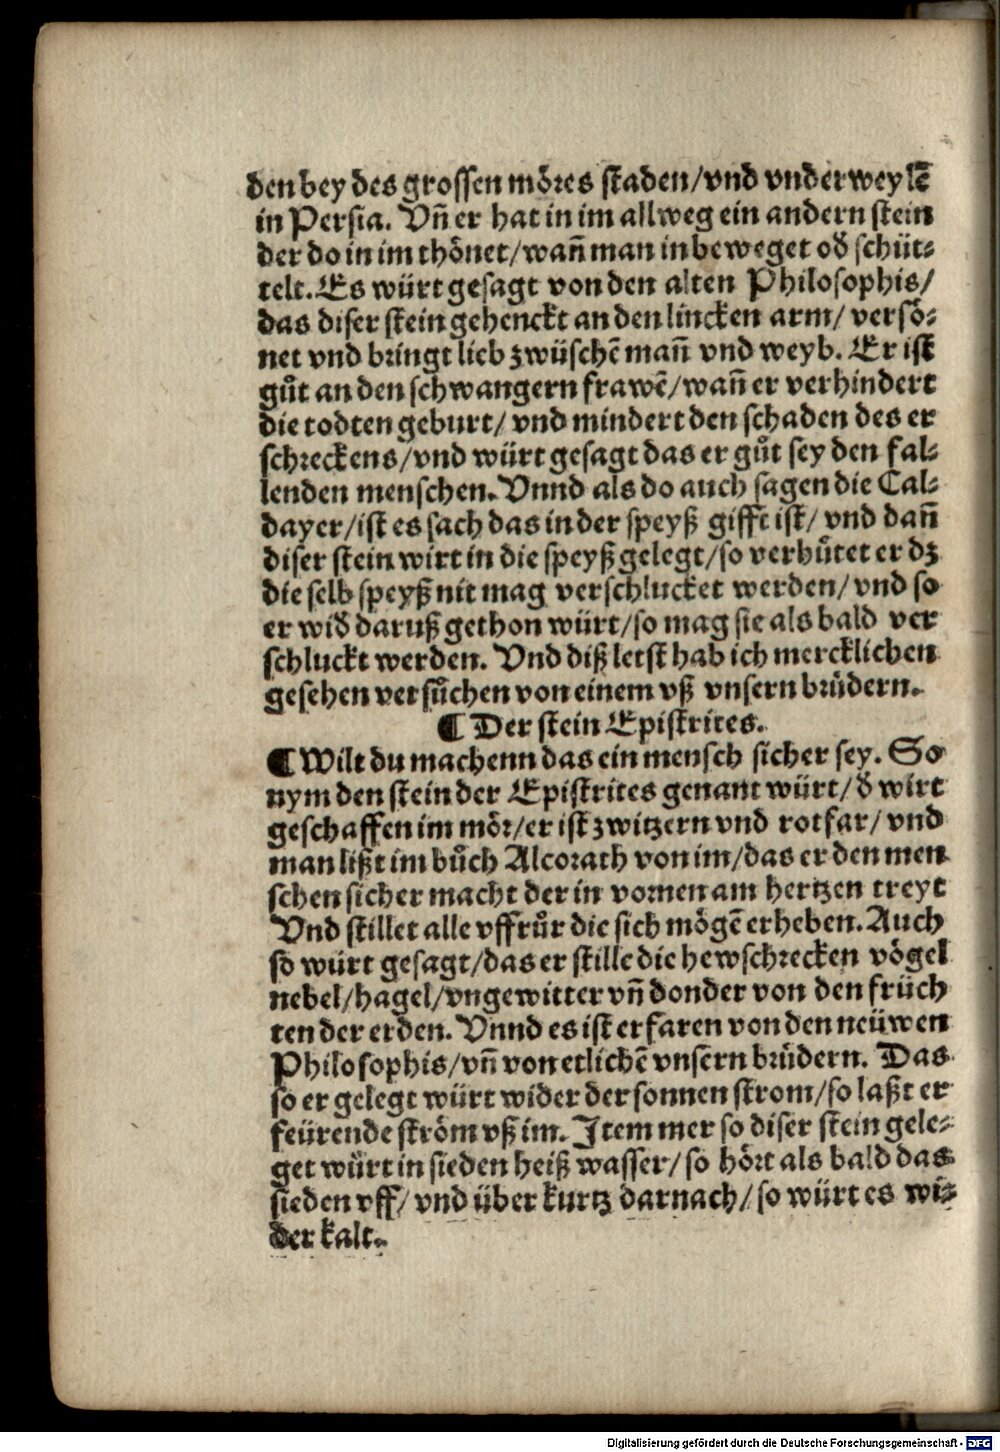 den bey des grossen mőres staden/vnd vnderweylē
in Persia. Vñ er hat in im allweg ein andern stein
der do in im thőnet/wañ man in beweget oď schüt⸗
telt. Es würt gesagt von den alten Philosophis/
das diser stein gehenckt an den lincken arm/ verső⸗
net vnd bringt lieb zwüschē mañ vnd weyb. Er ist
gůt an den schwangern frawē/wañ er verhindert
die todten geburt/ vnd mindert den schaden des er
schreckens/vnd würt gesagt das er gůt sey den fal⸗
lenden menschen. Vnnd als do auch sagen die Cal⸗
dayer/ist es sach das in der speyß gifft ist/ vnd dañ
diser stein wirt in die speyß gelegt/so verhůtet er dz
die selb speyß nit mag verschlucket werden/ vnd so
er wiď daruß gethon würt/so mag sie als bald ver
schluckt werden. Vnd diß letst hab ich mercklichen
gesehen versůchen von einem vß vnsern brůdern.
¶ Der stein Epistrites.
¶ Wilt du machenn das ein mensch sicher sey. So
nym den stein der Epistrites genant würt/ď wirt
geschaffen im mőr/er ist zwitzern vnd rotfar/ vnd
man lißt im bůch Alcorath von im/das er den men
schen sicher macht der in vornen am hertzen treyt
Vnd stillet alle vffrůr die sich mőgē erheben. Auch
so würt gesagt/das er stille die hewschrecken vőgel
nebel/hagel/vngewitter vñ donder von den früch
ten der erden. Vnnd es ist erfaren von den neüwen
Philosophis/vñ von etlichē vnsern brůdern. Das
so er gelegt würt wider der sonnen strom/so laßt er
feürende strőm vß im. Item mer so diser stein gele⸗
get würt in sieden heiß wasser/ so hőrt als bald das
sieden vff/ vnd über kurtz darnach/so würt es wi⸗
der kalt.
Digitalisierung gefördert durch die Deutsche Forschungsgemeinschaft - DFG